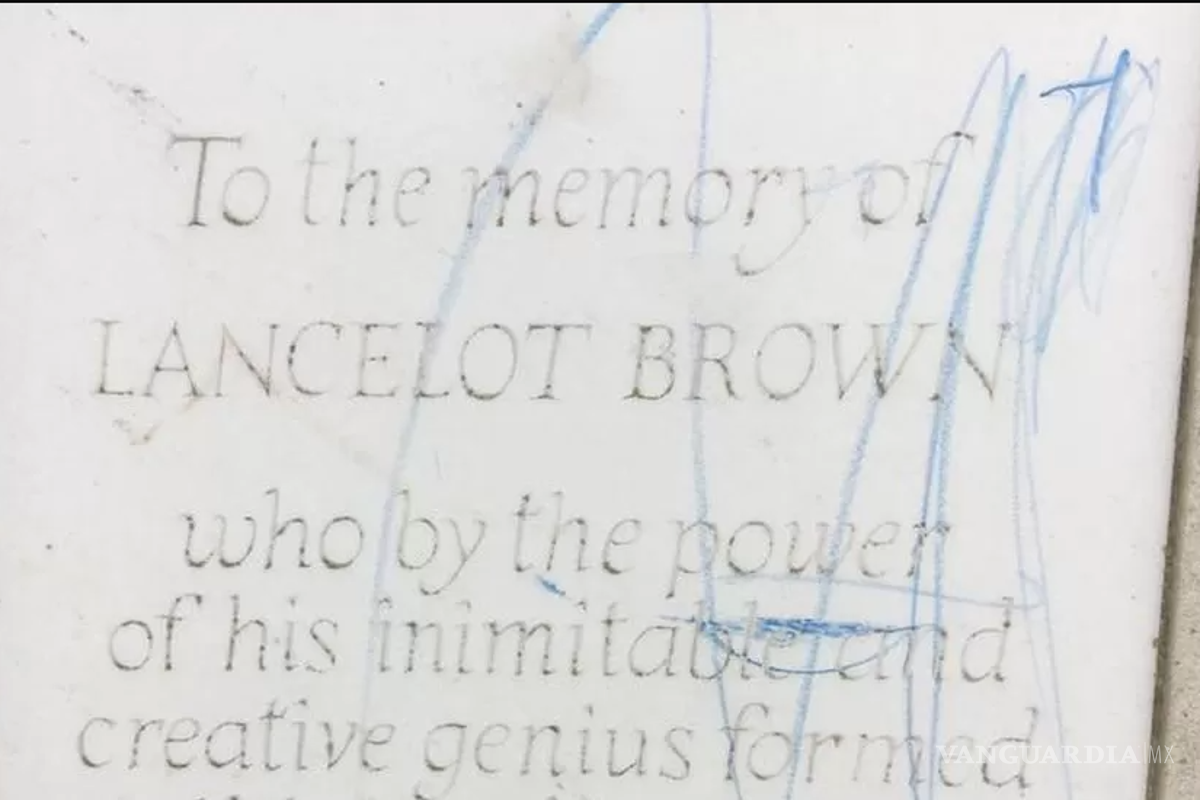 To the memory of
LANCELOT BROWN
who by the power
of his inimitable and
creative genius formed
VANGUARDIA|MX